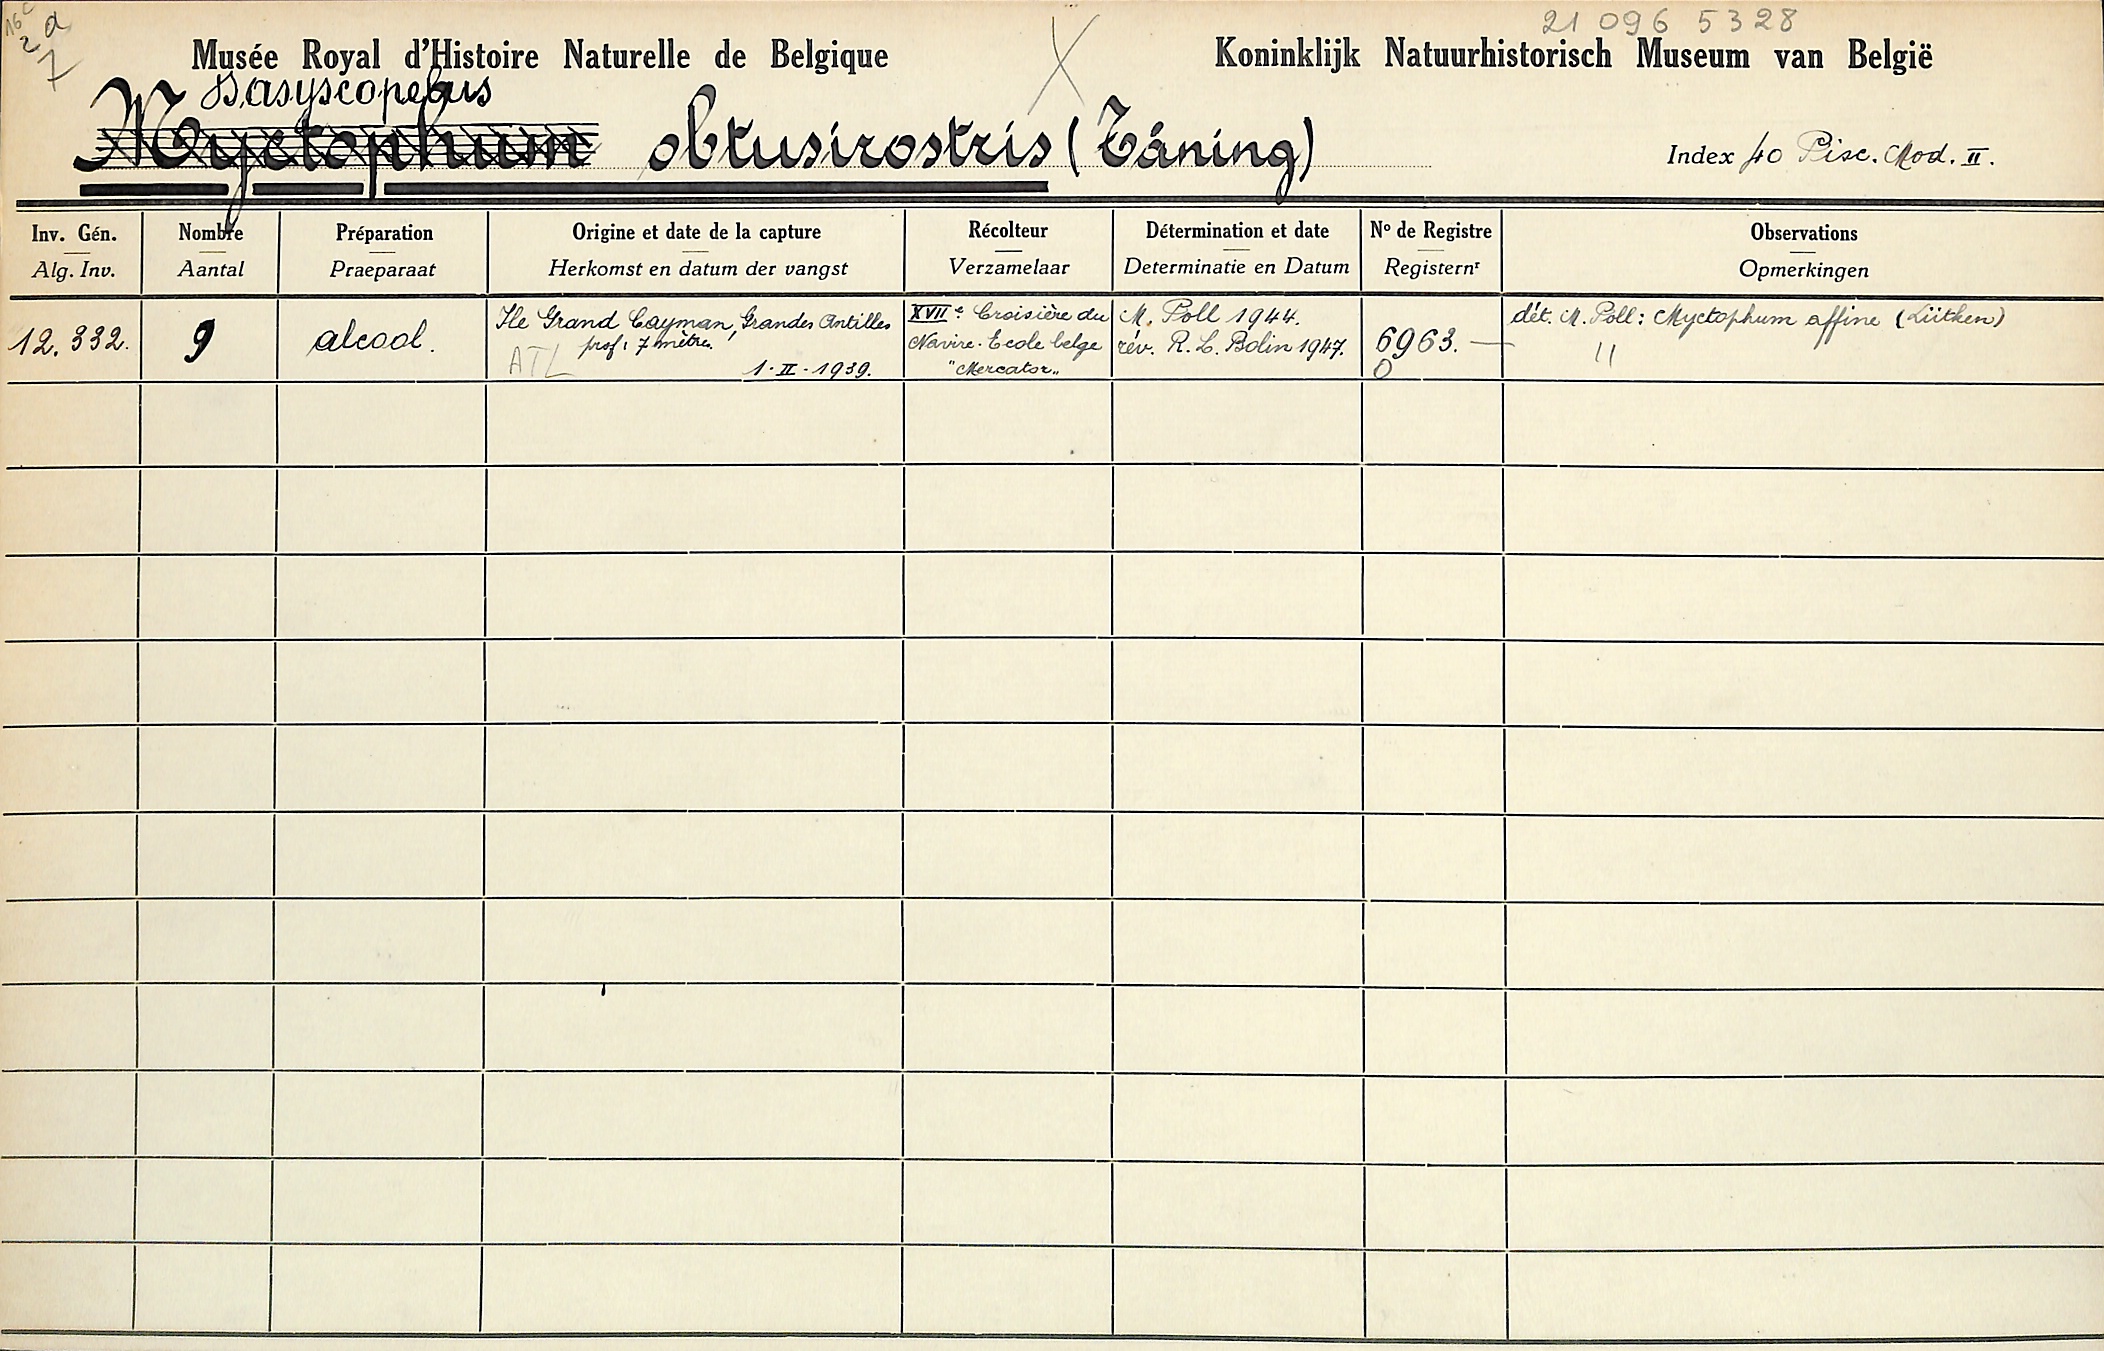 16c
2 d
7
21 096 5328
Musée Royal d'Histoire Naturelle de Belgique
X
Koninklijk Natuurhistorisch Museum van België
Dasyscopelus
Myctophum obtusirostris (Tåning)
Index 40 Pisc. Mod. II.
Inv. Gén.
Alg. Inv.
Nombre
Aantal
Préparation
Praeparaat
Origine et date de la capture
Herkomst en datum der vangst
Récolteur
Verzamelaar
Détermination et date
Determinatie en Datum
No de Registre
Registernr
Observations
Opmerkingen
12.332.
9
alcool.
Ile Grand Cayman, Grandes Antilles
prof: 7 mètres.
ATL
1.II.1939.
XVIIe Croisière du
Navire-Ecole belge
"Mercator"
M. Poll 1944.
rév. R. L. Bolin 1947.
6963. —
0
dét. M. Poll: Myctophum affine (Lütken)
11